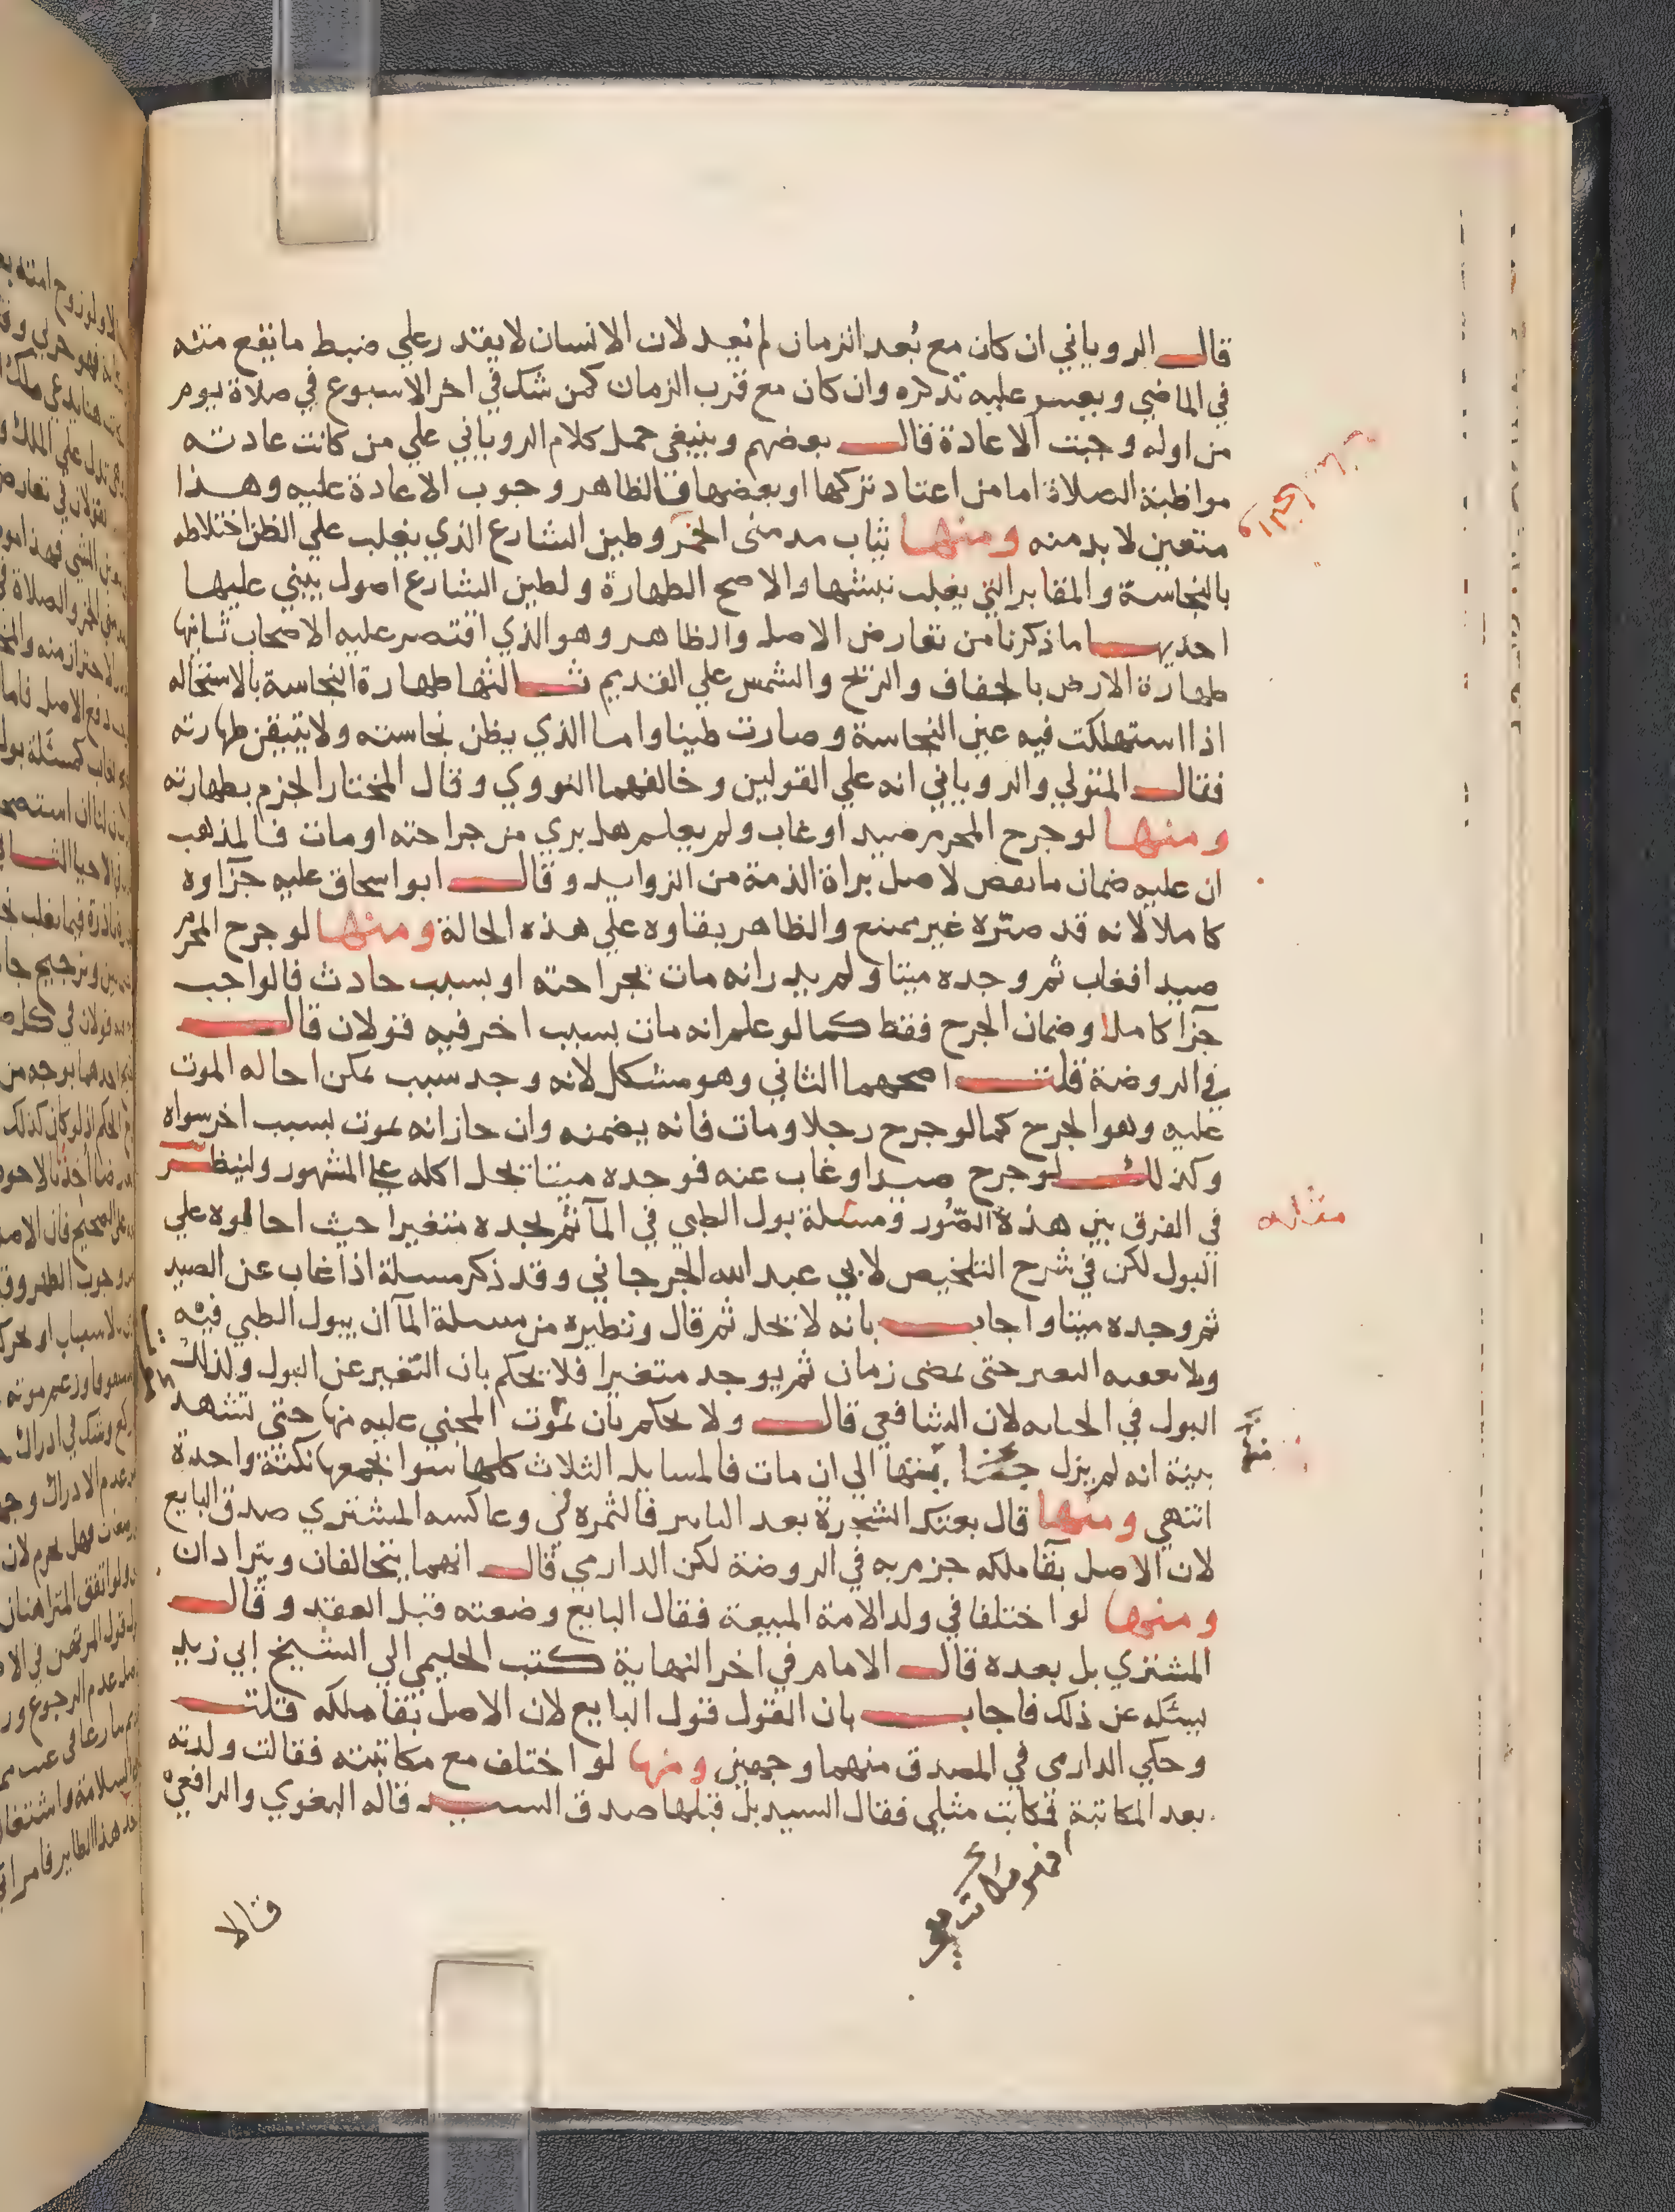 قال الروياني ان كان مع بُعد الزمان لم يُعد لان الانسان لا يقتدر علي ضبط ما يقع منه
في الماضي ويعسر عليه تذكره وان كان مع قرب الزمان كمن شك في اخر الاسبوع في صلاة يوم
من اوله وجبت الاعادة قال بعضهم وينبغي حمل كلام الروياني علي من كانت عادته
مواظبة الصلاة اما من اعتاد تركها او بعضها فالظاهر وجوب الاعادة عليه وهذا
متعين لا بد منه ومنها ثياب مدمني الخمر وطين الشارع الذي يغلب علي الظن اختلاطه
بالنجاسة والمقابر التي يغلب نبشها والاصح الطهارة ولطين الشارع اصول يبني عليها
احديها ما ذكرنا من تعارض الاصل والظاهر وهو الذي اقتصر عليه الاصحاب ثانيها
طهارة الارض بالجفاف والريح والشمس علي القديم ثالثها طهارة النجاسة بالاستحاله
اذا استهلكت فيه عين النجاسة وصارت طينا واما الذي يظن نجاسته ولا يتيقن طهارته
فقال المتولي والروياني انه علي القولين وخالفهما النووي وقال المختار الجزم بطهارته
ومنها لو جرح المحرم صيدا وغاب ولم يعلم هل بري من جراحته او مات فالمذهب
ان عليه ضمان ما نقص لاصل براة الذمة من الزوايد وقال ابو اسحاق عليه جزاوه
كاملا لانه قد صيره غير ممتنع والظاهر بقاوه علي هذه الحالة ومنها لو جرح المحرم
صيدا فغاب ثم وجده ميتا ولم يدر انه مات بجراحته او بسبب حادث فالواجب
جزآ كاملا وضمان الجرح فقط كما لو علم انه مات بسبب اخر فيه قولان قال
في الروضة قلت اصحهما الثاني وهو مشكل لانه وجد سبب يمكن احاله الموت
عليه وهو الجرح كما لو جرح رجلا ومات فانه يضمنه وان جاز انه يموت بسبب اخر سواه
وكذلك لو جرح صيدا وغاب عنه فوجده ميتا يحل اكله علي المشهور ولينظر
في الفرق بين هذه الصُور ومسئلة بول الظبي في المآ ثم يجده متغيرا حيث احالوه علي
البول لكن في شرح التلخيص لابي عبد الله الجرجاني وقد ذكر مسلة اذا غاب عن الصيد
ثم وجده ميتا واجاب بانه لا يحل ثم قال ونظيره من مسلة المآ ان يبول الظبي فيه
ولا يعقبه البصر حتي يمضي زمان ثم يوجد متغيرا فلا يحكم بان التغير عن البول ولذلك
البول في الجنايه لان الشافعي قال ولا يحكم بان يموت المجني عليه منها حتي تشهد
بينة انه لم يزل منها الي ان مات فالمسايل الثلاث كلها سوا يجمعها نكتة واحدة
انتهي ومنها قال بعتك الشجرة بعد التابير فالثمره لي وعاكسه المشتري صدق البايع
لان الاصل بقا ملكه جزم به في الروضة لكن الدارمي قال انهما يتحالفان ويترادان
ومنها لو اختلفا في ولد الامة المبيعة فقال البايع وضعته قبل العقد وقال
المشتري بل بعده قال الامام في اخر النهاية كتب الحليمي الي الشيخ ابي زيد
يسئله عن ذلك فاجاب بان القول قول البايع لان الاصل بقا ملكه قلت
وحكي الدارمي في المصدق منهما وجهين ومنها لو اختلف مع مكاتبته فقالت ولدته
بعد المكاتبة فكاتب مثلي فقال السيد بل قبلها صدق السيد قاله البغوي والرافعي
قالا